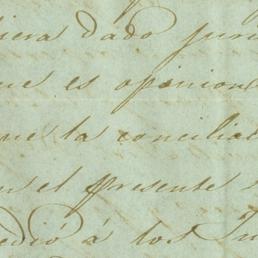 iera dado juri
ue es opinion
que la concilia
en el presente
edió á los Ju